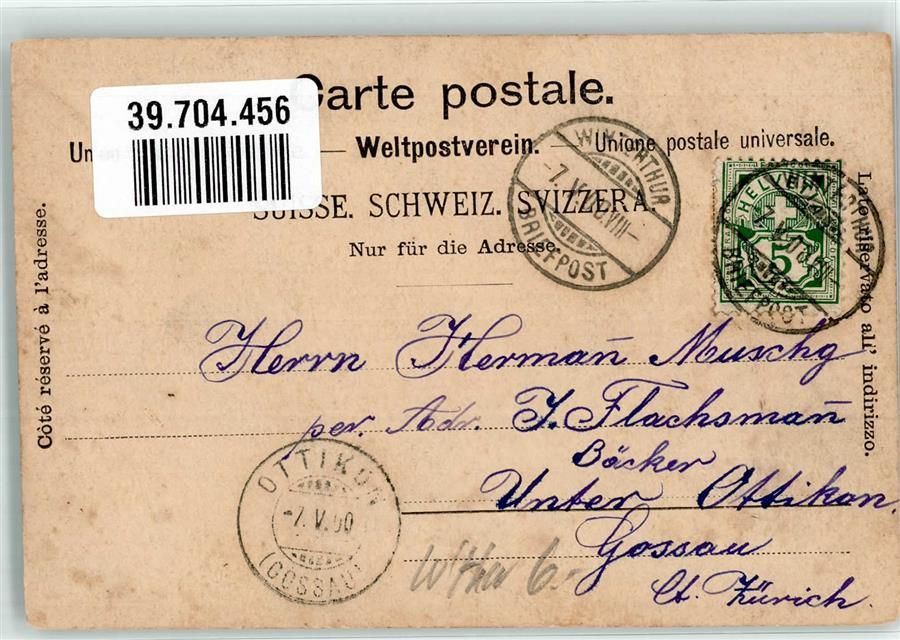 Carte postale.
39.704.456
Weltpostverein. — Unione postale universale.
SUISSE. SCHWEIZ. SVIZZERA.
Nur für die Adresse.
Côté réservé à l'adresse.
Lato riservato all' indirizzo.
WINTERTHUR
-7.V.00.VIII-
BRIEFPOST
HELVETIA
5
WINTERTHUR
BRIEFPOST
Herrn Herman̅ Muschg
per. Adr. J. Flachsman̅
Bäcker
Unter Ottikon.
Gossau
Ct. Zürich.
OTTIKON
-7.V.00
(GOSSAU)
6.-